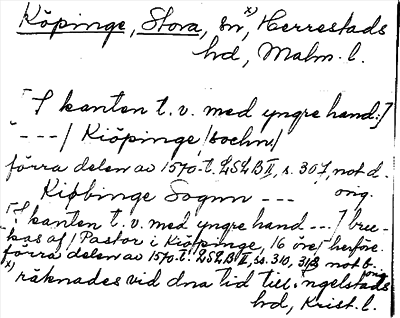 Köpinge, Stora, sn, x) Herrestads
hd, Malm. l.
[I kanten t. v. med yngre hand:]
"---/ Kiöpinge /sochn/
förra delen av 1570-t. LSLB II, s. 307, not d.
orig.
Kiöbinge Sognn ---
[I kanten t. v. med yngre hand ---] bru-
kas af / Pastor i Kiöpinge, 16 öre/ herföre.
förra delen av 1570-t. LSLB II, ss. 310, 313 not b.
orig.
x) räknades vid dna tid till Ingelstads
hd, Krist. l.